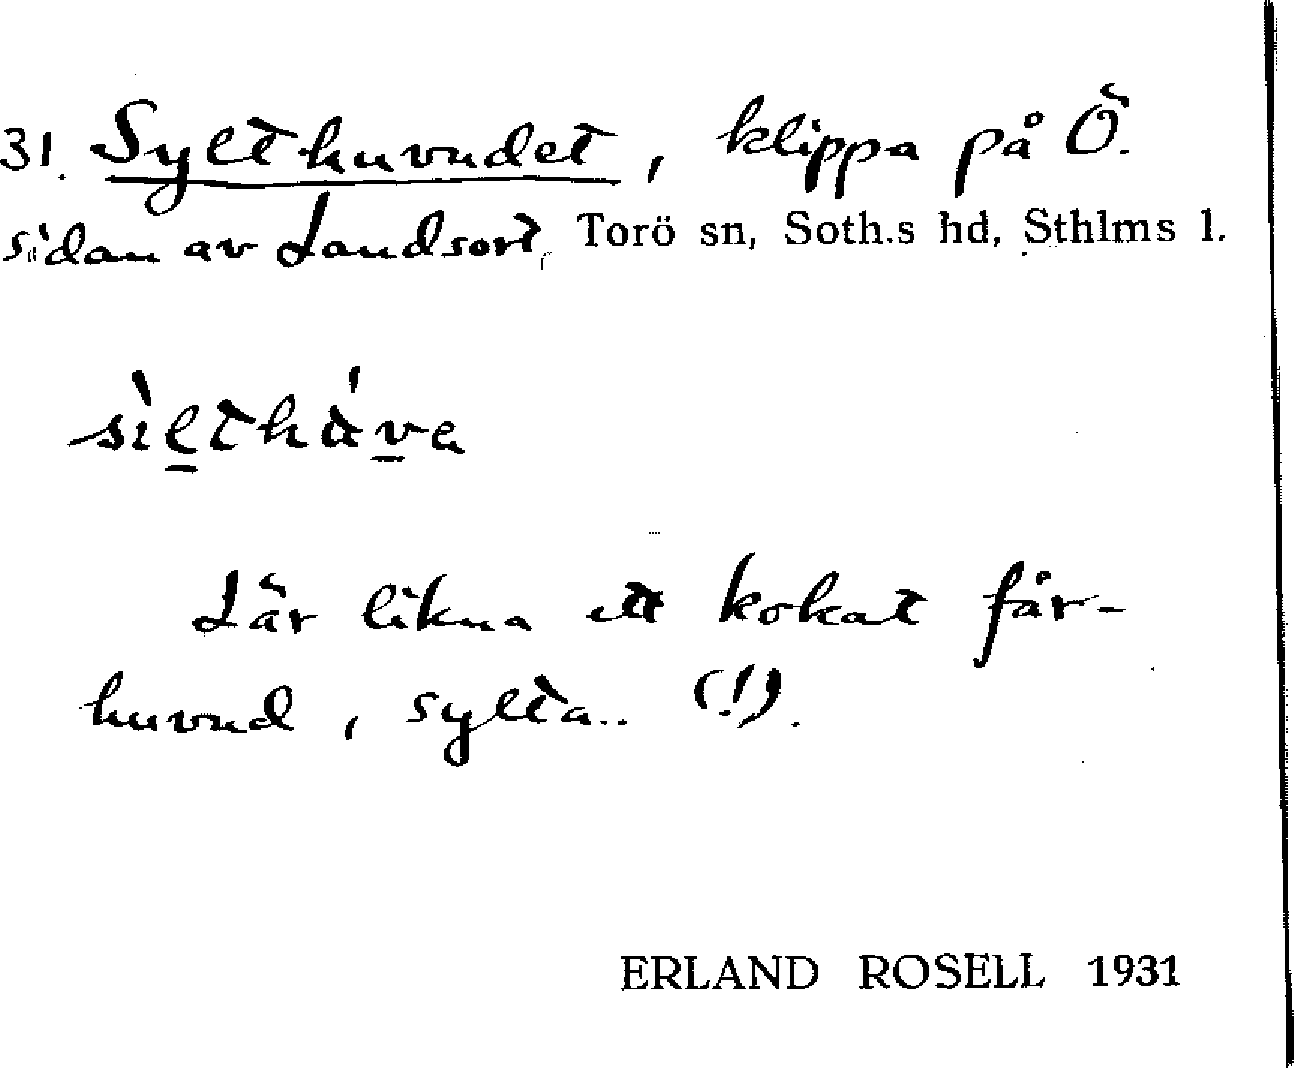 31. Sylthuvudet, klippa på Ö.
sidan av Landsort, Torö sn, Soth.s hd, Sthlms l.
Lär likna ett kokat får-
huvud, sylta.. (!).
ERLAND ROSELL 1931